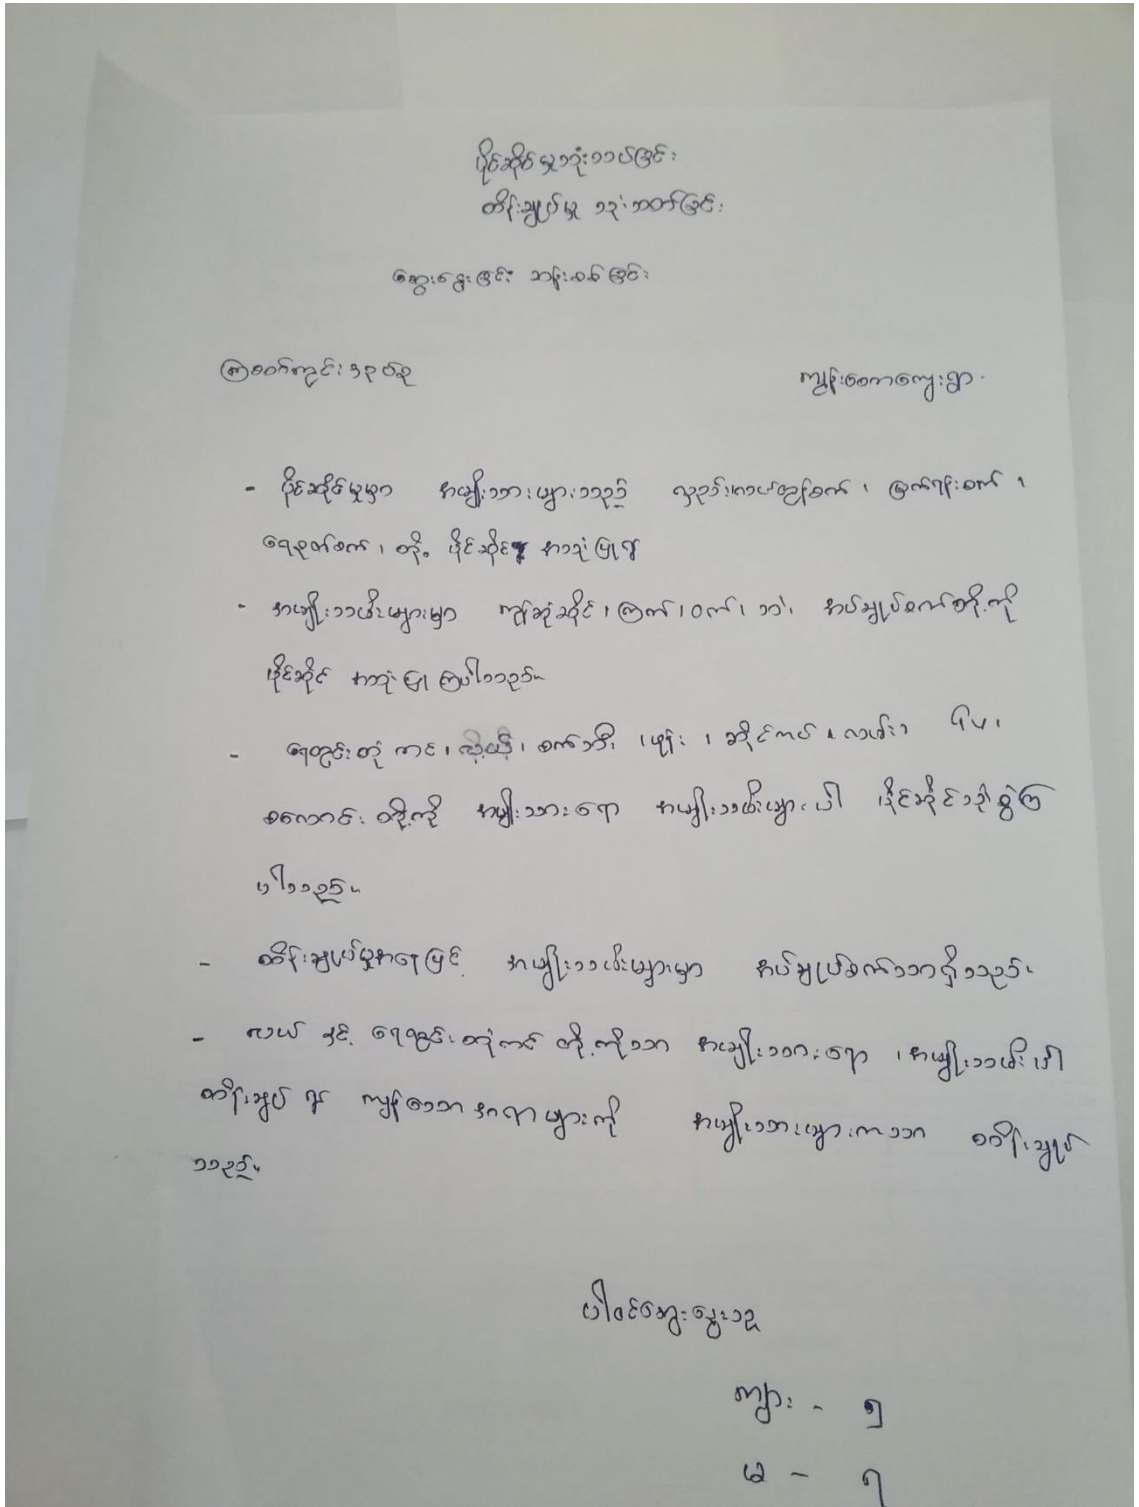 ပိုင်ဆိုင်မှုသုံးသပ်ခြင်း
ထိန်းချုပ်မှု သုံးသပ်ခြင်း
ဆွေးနွေးခြင်း ဆန်းစစ်ခြင်း
ကြခတ်ကွင်းအုပ်စု ကျွန်းလေကျေးရွာ
- ပိုင်ဆိုင်မှုမှာ အမျိုးသားများသည် လှည်း၊လယ်ထွန်စက်၊ မြက်ရိတ်စက်၊
ရေစုပ်စက်၊ တို့ ပိုင်ဆိုင် အသုံးပြု၍
- အမျိုးသမီးများမှာ ကုန်ဆုံဆိုင်၊ ကြက်၊ ဝက်၊ ဘဲ၊ အပ်ချုပ်စက်တို့ကို
ပိုင်ဆိုင် အသုံးပြုကြပါသည်။
- ရေတွင်းတုံကင်၊ စက်ဘီး၊ ဖုန်း၊ ဆိုင်ကယ်၊ လယ်၊
စလောင်း တို့ကို အမျိုးသားရော အမျိုးသမီးများပါ ပိုင်ဆိုင်သုံးစွဲကြ
ပါသည်။
- ထိန်းချုပ်မှုအနေဖြင့် အမျိုးသမီးများမှာ အပ်ချုပ်စက်သာရှိသည်။
- လယ် နှင့် ရေတွင်းတုံကင် တို့ကိုသာ အမျိုးသားရော၊ အမျိုးသမီးပါ
ထိန်းချုပ်၍ ကျန်သောအရာများကို အမျိုးသားများကသာ ထိန်းချုပ်
သည်။
ပါဝင်ဆွေးနွေးသူ
ကျား - ၅
မ - ၇